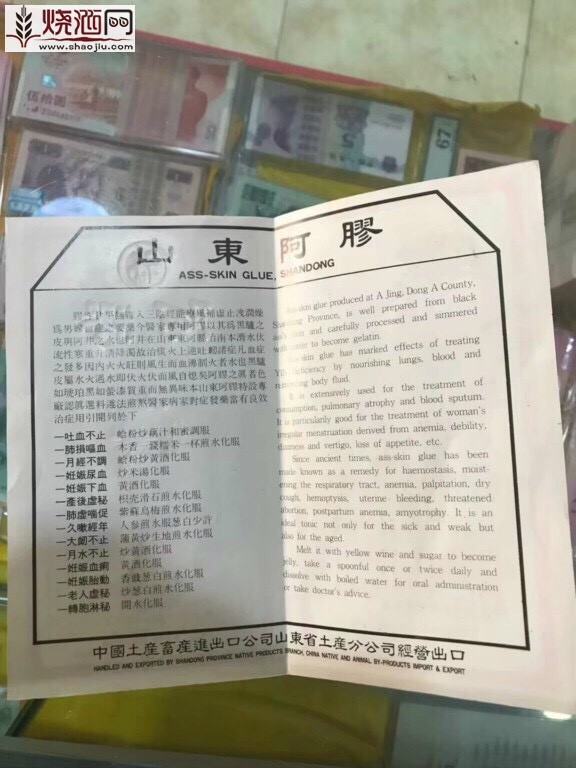 烧酒网
www.shaojiu.com
伍拾圆
67
山東阿膠
ASS-SKIN GLUE, SHANDONG
皮屬水火遇水即伏火伏而風自熄矣阿膠之眞者色
廠認眞選料遵法煎熬醫家病者對症發藥當有良效
治症用引開列於下
一吐血不止 蛤粉炒藕汁和蜜調服
一肺損嘔血 木香一錢糯米一杯煎水化服
一月經不調 蛤粉炒黃酒化服
一妊娠尿血 炒米湯化服
一妊娠下血 黃酒化服
一產後虛秘 枳壳滑石煎水化服
一肺虛喘促 紫蘇烏梅煎水化服
一久嗽經年 人參煎水服葱白少許
一大衂不止 蒲黃炒生地煎水化服
一月水不止 炒黃酒化服
一妊娠血痢 黃酒化服
一妊娠胎動 香豉葱白煎水化服
一老人虛秘 炒葱白煎水化服
一轉胞淋秘 開水化服
Ass-skin glue produced at A Jing, Dong A County,
Province, is well prepared from black
skin and carefully processed and simmered
water to become gelatin.
Ass-skin glue has marked effects of treating
deficiency by nourishing lungs, blood and
body fluid.
It is extensively used for the treatment of
consumption, pulmonary atrophy and blood sputum.
It is particularly good for the treatment of woman's
irregular menstruation derived from anemia, debility,
dizziness and vertigo, loss of appetite, etc.
Since ancient times, ass-skin glue has been
made known as a remedy for haemostasis, moist-
ening the respiratory tract, anemia, palpitation, dry
cough, hemoptysis, uterine bleeding, threatened
abortion, postpartum anemia, amyotrophy. It is an
ideal tonic not only for the sick and weak but
also for the aged.
Melt it with yellow wine and sugar to become
jelly, take a spoonful once or twice daily and
dissolve with boiled water for oral administration
or take doctor's advice.
中國土産畜產進出口公司山東省土産分公司經營出口
HANDLED AND EXPORTED BY SHANDONG PROVINCE NATIVE PRODUCTS BRANCH, CHINA NATIVE AND ANIMAL BY-PRODUCTS IMPORT & EXPORT